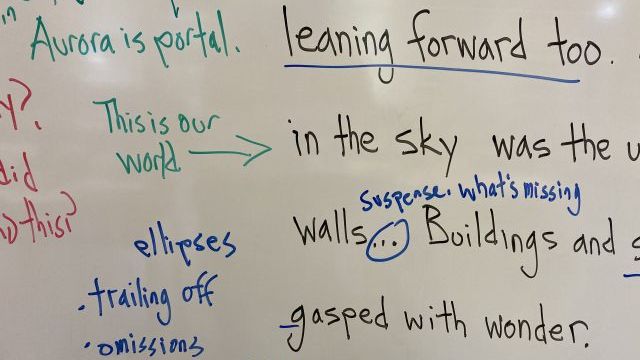 in
Aurora is portal.
leaning forward too.
This is our
world
in the sky was the
suspense. what's missing
walls... Buildings and
ellipses
. trailing off
• omissions
gasped with wonder.
this?